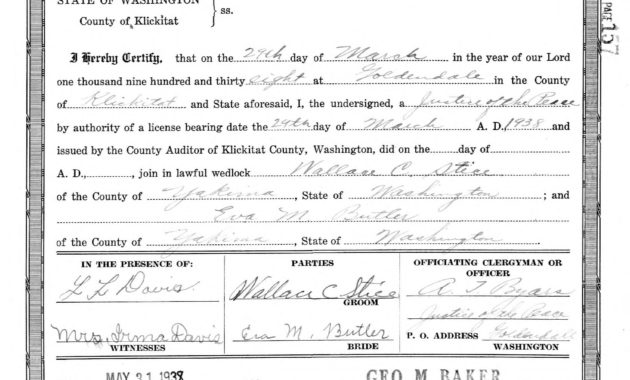 STATE OF WASHINGTON
County of Klickitat
ss.
PAGE 157
I Hereby Certify, that on the 29th day of March in the year of our Lord
one thousand nine hundred and thirty eight at Goldendale in the County
of Klickitat and State aforesaid, I, the undersigned, a Justice of the Peace
by authority of a license bearing date the 29th day of March A. D., 1938 and
issued by the County Auditor of Klickitat County, Washington, did on the day of
A. D., , join in lawful wedlock Wallace C. Stice
of the County of Yakima, State of Washington ; and
Eva M. Butler
of the County of Yakima, State of Washington
IN THE PRESENCE OF: PARTIES OFFICIATING CLERGYMAN OR
OFFICER
L L Davis. Wallace C Stice A. T Byars
GROOM Justice of the Peace
Mrs, Irma Davis Eva M. Butler P. O. ADDRESS Goldendale
WITNESSES BRIDE WASHINGTON
MAY 31 1938 GEO M BAKER